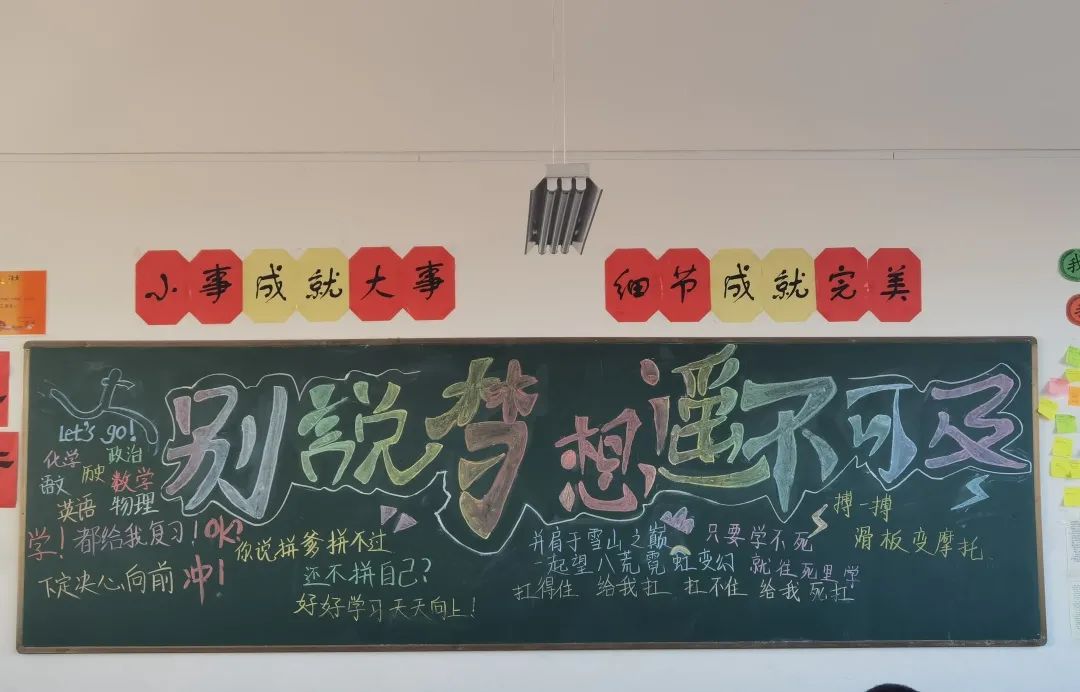 小事成就大事
细节成就完美
别说梦想遥不可及
Let's go!
化学 政治
语文 历史 数学
英语 物理
学！都给我复习！OK?
下定决心向前 冲！
你说拼爹拼不过
还不拼自己？
好好学习天天向上！
并肩于雪山之巅
一起望八荒霓虹变幻
扛得住 给我扛 扛不住 给我死扛
只要学不死
就往死里学
搏一搏
滑板变摩托